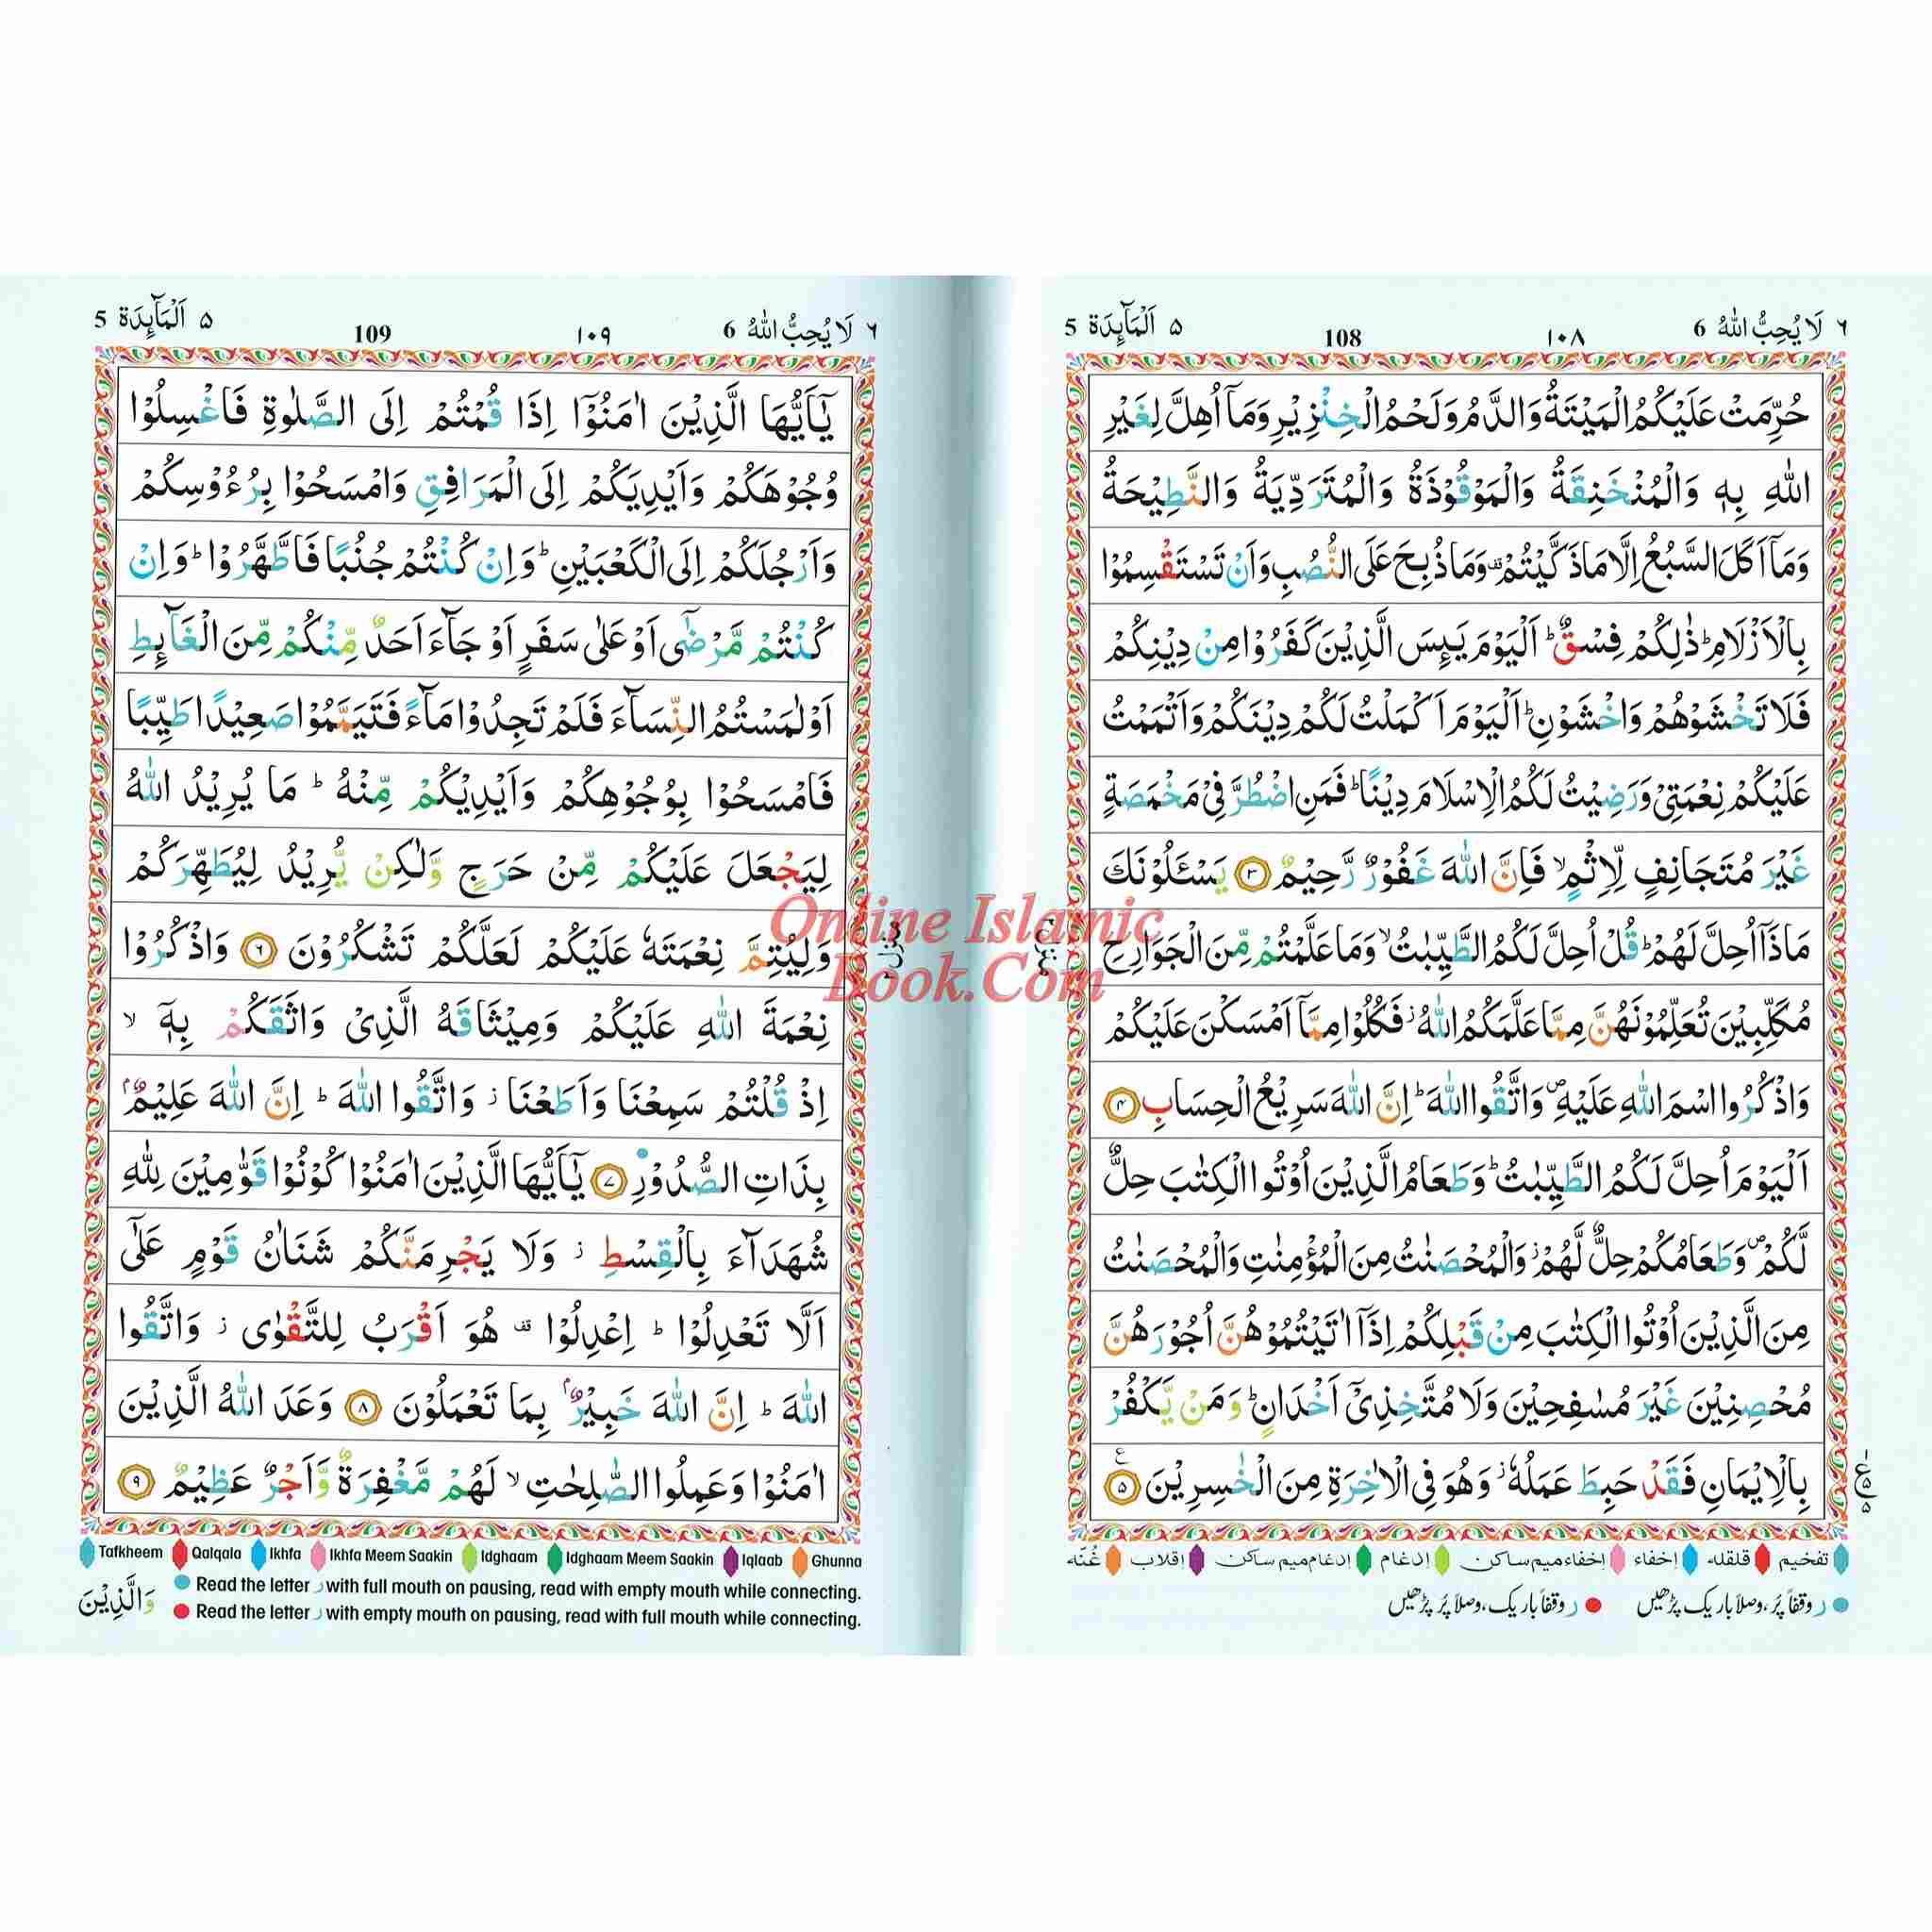 ٦ لَا يُحِبُّ اللّٰهُ 6
١٠٨
108
٥ اَلْمَآئِدَة 5
حُرِّمَتْ عَلَيْكُمُ الْمَيْتَةُ وَالدَّمُ وَلَحْمُ الْخِنْزِيْرِ وَمَآ اُهِلَّ لِغَيْرِ
اللّٰهِ بِهٖ وَالْمُنْخَنِقَةُ وَالْمَوْقُوْذَةُ وَالْمُتَرَدِّيَةُ وَالنَّطِيْحَةُ
وَمَآ اَكَلَ السَّبُعُ اِلَّا مَا ذَكَّيْتُمْ ۫ وَمَا ذُبِحَ عَلَى النُّصُبِ وَاَنْ تَسْتَقْسِمُوْا
بِالْاَزْلَامِ ؕ ذٰلِكُمْ فِسْقٌ ؕ اَلْيَوْمَ يَئِسَ الَّذِيْنَ كَفَرُوْا مِنْ دِيْنِكُمْ
فَلَا تَخْشَوْهُمْ وَاخْشَوْنِ ؕ اَلْيَوْمَ اَكْمَلْتُ لَكُمْ دِيْنَكُمْ وَاَتْمَمْتُ
عَلَيْكُمْ نِعْمَتِيْ وَرَضِيْتُ لَكُمُ الْاِسْلَامَ دِيْنًا ؕ فَمَنِ اضْطُرَّ فِيْ مَخْمَصَةٍ
غَيْرَ مُتَجَانِفٍ لِّاِثْمٍ ۙ فَاِنَّ اللّٰهَ غَفُوْرٌ رَّحِيْمٌ ٣ يَسْـَٔلُوْنَكَ
مَاذَآ اُحِلَّ لَهُمْ ؕ قُلْ اُحِلَّ لَكُمُ الطَّيِّبٰتُ ۙ وَمَا عَلَّمْتُمْ مِّنَ الْجَوَارِحِ
مُكَلِّبِيْنَ تُعَلِّمُوْنَهُنَّ مِمَّا عَلَّمَكُمُ اللّٰهُ ؗ فَكُلُوْا مِمَّآ اَمْسَكْنَ عَلَيْكُمْ
وَاذْكُرُوا اسْمَ اللّٰهِ عَلَيْهِ ۪ وَاتَّقُوا اللّٰهَ ؕ اِنَّ اللّٰهَ سَرِيْعُ الْحِسَابِ ٤
اَلْيَوْمَ اُحِلَّ لَكُمُ الطَّيِّبٰتُ ؕ وَطَعَامُ الَّذِيْنَ اُوْتُوا الْكِتٰبَ حِلٌّ
لَّكُمْ ۪ وَطَعَامُكُمْ حِلٌّ لَّهُمْ ؗ وَالْمُحْصَنٰتُ مِنَ الْمُؤْمِنٰتِ وَالْمُحْصَنٰتُ
مِنَ الَّذِيْنَ اُوْتُوا الْكِتٰبَ مِنْ قَبْلِكُمْ اِذَآ اٰتَيْتُمُوْهُنَّ اُجُوْرَهُنَّ
مُحْصِنِيْنَ غَيْرَ مُسٰفِحِيْنَ وَلَا مُتَّخِذِيْٓ اَخْدَانٍ ؕ وَمَنْ يَّكْفُرْ
بِالْاِيْمَانِ فَقَدْ حَبِطَ عَمَلُهٗ ؗ وَهُوَ فِي الْاٰخِرَةِ مِنَ الْخٰسِرِيْنَ ٥
تفخيم قلقله إخفاء إخفاء ميم ساكن إدغام إدغام ميم ساكن إقلاب غُنّه
ر وقفاً پُر، وصلاً باریک پڑھیں ر وقفاً باریک، وصلاً پُر پڑھیں
٦ لَا يُحِبُّ اللّٰهُ 6
١٠٩
109
٥ اَلْمَآئِدَة 5
يٰٓاَيُّهَا الَّذِيْنَ اٰمَنُوْٓا اِذَا قُمْتُمْ اِلَى الصَّلٰوةِ فَاغْسِلُوْا
وُجُوْهَكُمْ وَاَيْدِيَكُمْ اِلَى الْمَرَافِقِ وَامْسَحُوْا بِرُءُوْسِكُمْ
وَاَرْجُلَكُمْ اِلَى الْكَعْبَيْنِ ؕ وَاِنْ كُنْتُمْ جُنُبًا فَاطَّهَّرُوْا ؕ وَاِنْ
كُنْتُمْ مَّرْضٰٓى اَوْ عَلٰى سَفَرٍ اَوْ جَآءَ اَحَدٌ مِّنْكُمْ مِّنَ الْغَآئِطِ
اَوْ لٰمَسْتُمُ النِّسَآءَ فَلَمْ تَجِدُوْا مَآءً فَتَيَمَّمُوْا صَعِيْدًا طَيِّبًا
فَامْسَحُوْا بِوُجُوْهِكُمْ وَاَيْدِيْكُمْ مِّنْهُ ؕ مَا يُرِيْدُ اللّٰهُ
لِيَجْعَلَ عَلَيْكُمْ مِّنْ حَرَجٍ وَّلٰكِنْ يُّرِيْدُ لِيُطَهِّرَكُمْ
وَلِيُتِمَّ نِعْمَتَهٗ عَلَيْكُمْ لَعَلَّكُمْ تَشْكُرُوْنَ ٦ وَاذْكُرُوْا
نِعْمَةَ اللّٰهِ عَلَيْكُمْ وَمِيْثَاقَهُ الَّذِيْ وَاثَقَكُمْ بِهٖٓ ۙ
اِذْ قُلْتُمْ سَمِعْنَا وَاَطَعْنَا ؗ وَاتَّقُوا اللّٰهَ ؕ اِنَّ اللّٰهَ عَلِيْمٌۢ
بِذَاتِ الصُّدُوْرِ ٧ يٰٓاَيُّهَا الَّذِيْنَ اٰمَنُوْا كُوْنُوْا قَوّٰمِيْنَ لِلّٰهِ
شُهَدَآءَ بِالْقِسْطِ ؗ وَلَا يَجْرِمَنَّكُمْ شَنَاٰنُ قَوْمٍ عَلٰٓى
اَلَّا تَعْدِلُوْا ؕ اِعْدِلُوْا ۫ هُوَ اَقْرَبُ لِلتَّقْوٰى ؗ وَاتَّقُوا
اللّٰهَ ؕ اِنَّ اللّٰهَ خَبِيْرٌۢ بِمَا تَعْمَلُوْنَ ٨ وَعَدَ اللّٰهُ الَّذِيْنَ
اٰمَنُوْا وَعَمِلُوا الصّٰلِحٰتِ ۙ لَهُمْ مَّغْفِرَةٌ وَّاَجْرٌ عَظِيْمٌ ٩
Tafkheem Qalqala Ikhfa Ikhfa Meem Saakin Idghaam Idghaam Meem Saakin Iqlaab Ghunna
Read the letter ر with full mouth on pausing, read with empty mouth while connecting.
Read the letter ر with empty mouth on pausing, read with full mouth while connecting.
وَالَّذِيْنَ
Online Islamic
Book.Com